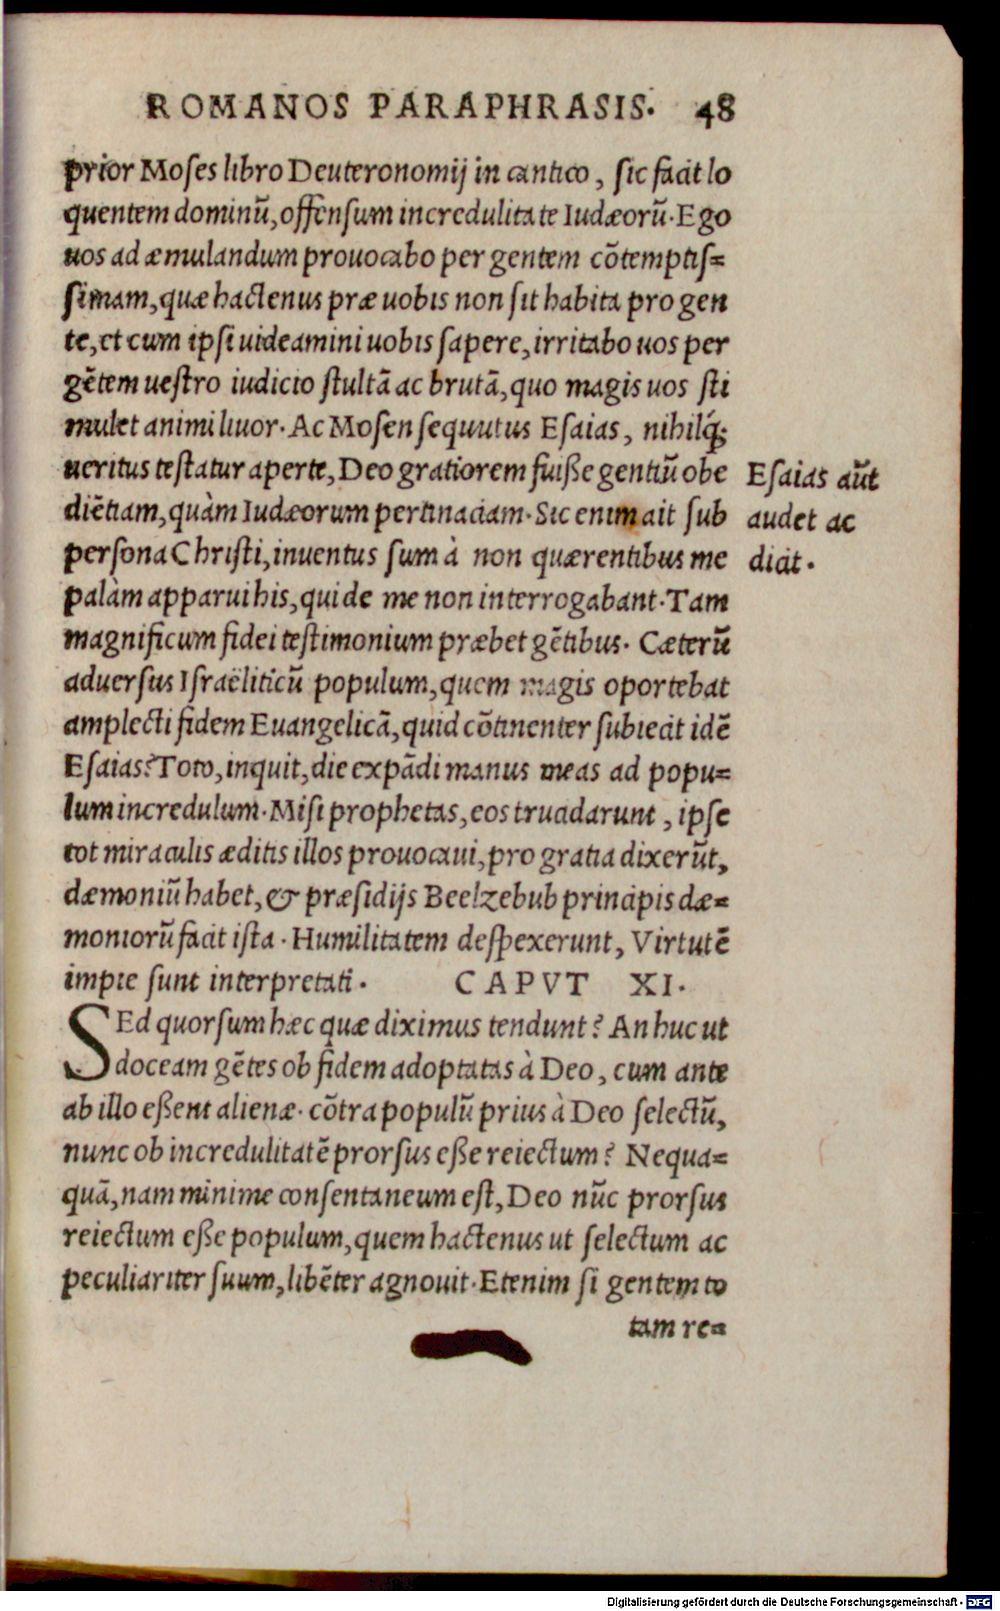 ROMANOS PARAPHRASIS. 48
prior Moses libro Deuteronomij in cantico, sic facit lo
quentem dominũ, offensum incredulitate Iudæorũ. Ego
uos ad æmulandum prouocabo per gentem cõtemptis=
simam, quæ hactenus præ uobis non sit habita pro gen
te, et cum ipsi uideamini uobis sapere, irritabo uos per
gẽtem uestro iudicio stultã ac brutã, quo magis uos sti
mulet animi liuor. Ac Mosen sequutus Esaias, nihilq́;
ueritus testatur aperte, Deo gratiorem fuisse gentiũ obe
diẽtiam, quàm Iudæorum pertinaciam. Sic enim ait sub
persona Christi, inuentus sum à non quærentibus me
palàm apparui his, qui de me non interrogabant. Tam
magnificum fidei testimonium præbet gẽtibus. Cæterũ
aduersus Israëliticũ populum, quem magis oportebat
amplecti fidem Euangelicã, quid cõtinenter subiecit idẽ
Esaias? Toto, inquit, die expãdi manus meas ad popu=
lum incredulum. Misi prophetas, eos trucidarunt, ipse
tot miraculis æditis illos prouocaui, pro gratia dixerũt,
dæmoniũ habet, & præsidijs Beelzebub principis dæ=
moniorũ facit ista. Humilitatem despexerunt, Virtutẽ
impie sunt interpretati. CAPVT XI.
SEd quorsum hæc quæ diximus tendunt? An huc ut
doceam gẽtes ob fidem adoptatas à Deo, cum ante
ab illo essent alienæ. cõtra populũ prius à Deo selectũ,
nunc ob incredulitatẽ prorsus esse reiectum? Nequa=
quã, nam minime consentaneum est, Deo nũc prorsus
reiectum esse populum, quem hactenus ut selectum ac
peculiariter suum, libẽter agnouit. Etenim si gentem to
tam re=
Esaias aũt
audet ac
dicit.
Digitalisierung gefördert durch die Deutsche Forschungsgemeinschaft - DFG